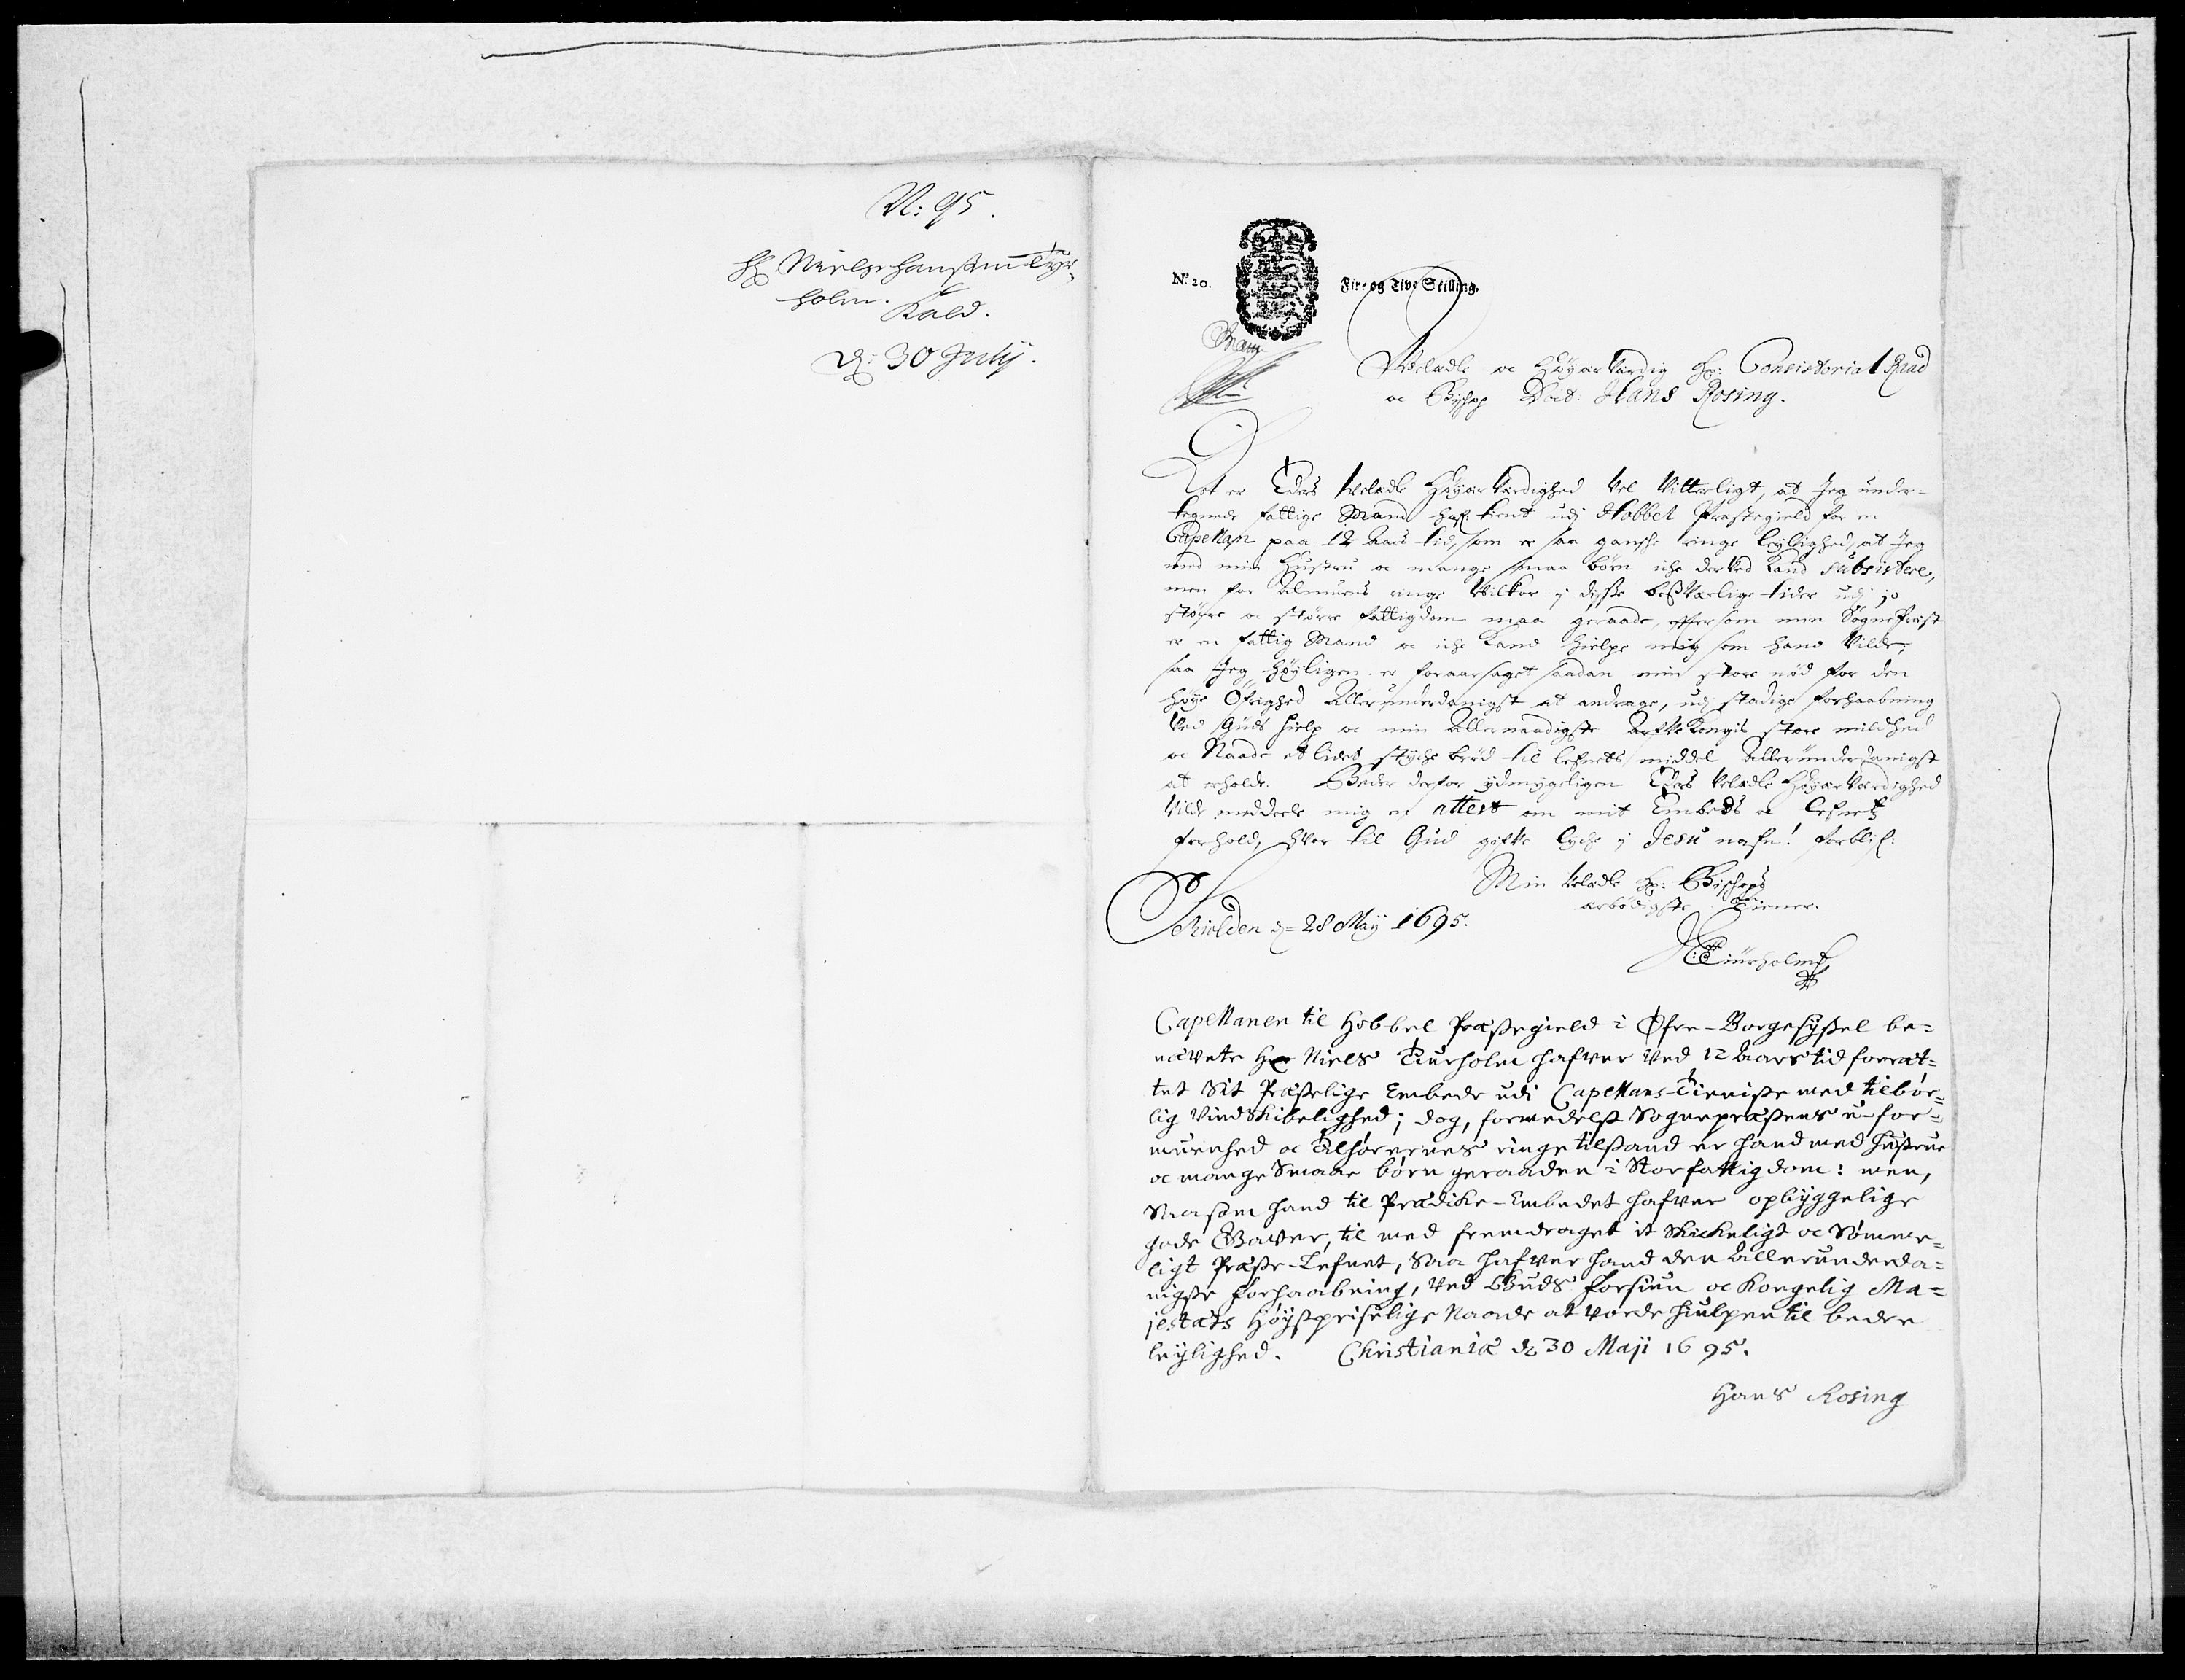 N: 95.
Hr Niels Hansen Tyr„
holm.
Kald.
d: 30 Julij.
No. 20.
Fire og Tive Skilling.
Velædle oc Høyærværdig Hr: Consistorial Raad
oc Bischop Doct: Hans Rosing.
Det er Eders Velædle Høyærværdighed vel vitterligt, at Jeg under-
tegnede fattige Mand haf: tient udj Hobbel Præstegield for en
Capellan paa 12 Aars tid, som er saa gansche ringe leylighed, at Jeg
med min Hustru oc mange smaa børn iche derved kand subsistere,
men for Almuens ringe vilkor j disse besværlige tider udj jo
større oc større fattigdom maa geraade, effter som min SognePræst
er en fattig Mand oc iche kand hielpe mig som hand vilde,
saa Jeg høyligen er foraarsaget saadan min store nød for den
høye Øfrighed Allerunderdanigst at andrage, udj stadige forhaabning
ved Guds hielp oc min Allernaadigste ArfveKongis store mildhed
oc Naade et lidet styche brød til lefnets middel Allerunderdanigst
at erholde. Beder derfor ydmygeligen Eders Velædle Høyærværdighed
vilde meddeele mig en attest om mit Embeds oc lefnetz
forhold, hvor til Gud gifve lyche j Jesu nafn! forblif:
Min Velædle Hr: Bischops
ærbødigste Tiener.
Skiolden d= 28 Maij 1695.
N: Tiurholm
Capellanen til Hobbel Præstegield i Øfre-Borgesyssel be=
nævnte Hr Niels Tiurholm hafver ved 12 Aars tid forret=
tet Sit Præstelige Embede udi Capellans-Tieniste med tilbør=
lig Vindskibelighed; dog, formedelst Sognepræstens u-for=
muenhed oc Tilhørernes ringe tilstand er hand med Hustrue
oc mange Smaae børn geraaden i Stor fattigdom: men,
Saasom hand til Prædike-Embedet hafver opbyggelige
gode Gaver, til med fremdraget it Skickeligt oc Sømme=
ligt Præste-Lefnet, Saa hafver hand den Allerunderda=
nigste forhaabning, ved Guds forsiun oc Kongelig Ma=
jestæts Høystpriselige Naade at vorde hiulpen til bedre
leylighed. Christianiæ d. 30 Maji 1695.
Hans Rosing